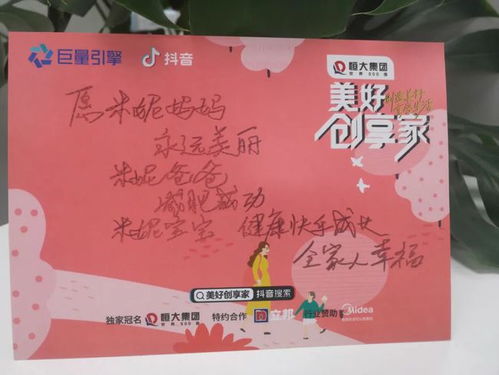 巨量引擎 抖音
恒大集团
世界500强
美好
创享家
愿米妮妈妈
永远美丽
米妮爸爸
减肥成功
米妮宝宝 健康快乐成长
全家人幸福
美好创享家 抖音搜索
独家冠名 恒大集团 特约合作 立邦 行业赞助 Midea